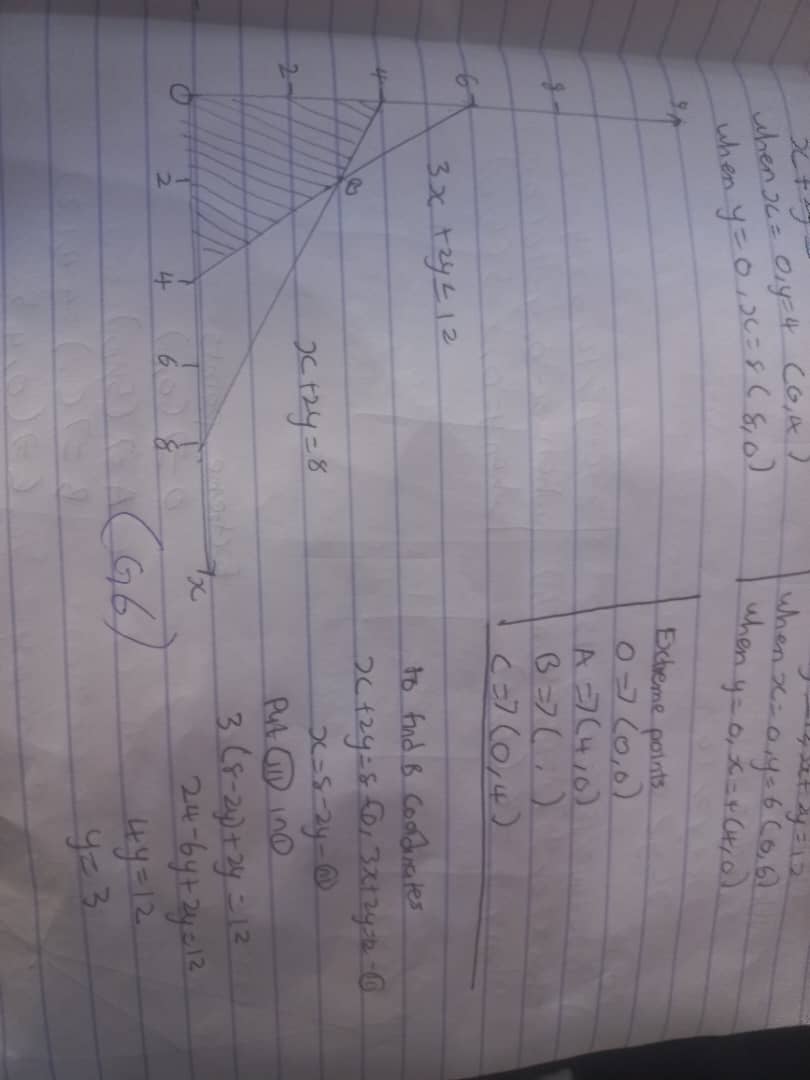 when x=0, y=4 (0,4)
when y=0, x=8 (8,0)
when x=0, y=6 (0,6)
when y=0, x=4 (4,0)
y
8
6
4
2
0
2
4
6
8
x
B
3x+2y=12
x+2y=8
Extreme points
O=>(0,0)
A=>(4,0)
B=>( , )
C=>(0,4)
to find B coordinates
x+2y=8-(i), 3x+2y=12-(ii)
x=8-2y-(iii)
Put (iii) in
3(8-2y)+2y=12
24-6y+2y=12
4y=12
y=3